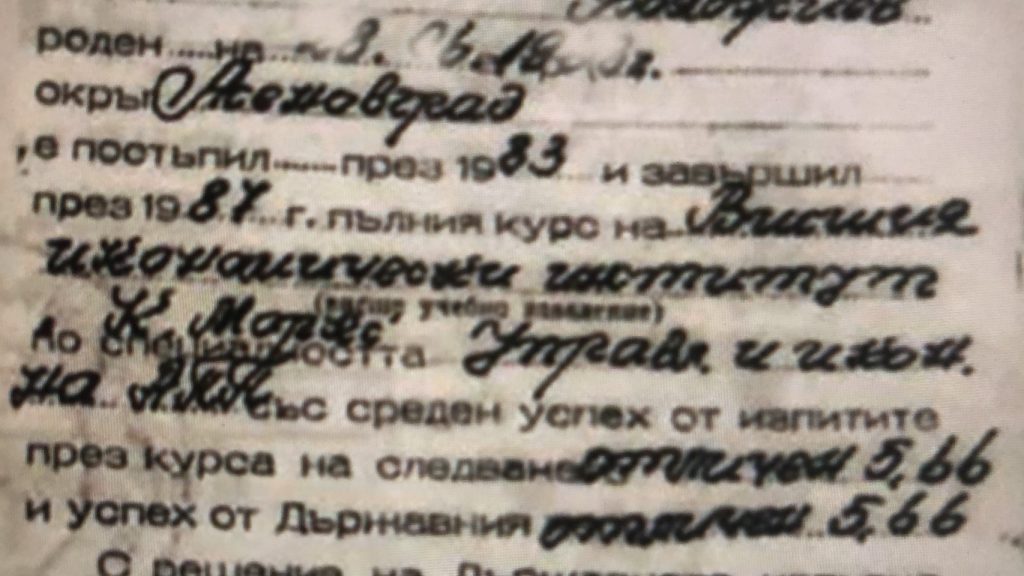 роден ..... на
окръг Асеновград
е постъпил ....... през 1983 и завършил
през 1987 г. пълния курс на Висшия
икономически институт
(висше учебно заведение)
К. Маркс
по специалността Управл. и икон.
на АПК със среден успех от изпитите
през курса на следване отличен 5,66
и успех от Държавния отличен 5,66
С решение на Държавната